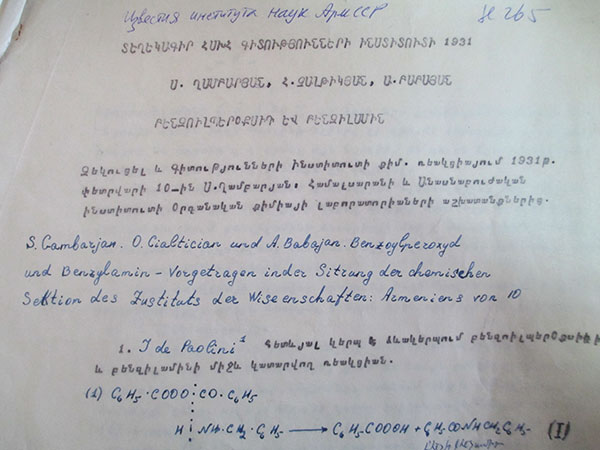 Известия института наук АрмССР
№ 265
ՏԵՂԵԿԱԳԻՐ ՀՍԽՀ ԳԻՏՈՒԹՅՈՒՆՆԵՐԻ ԻՆՍՏԻՏՈՒՏԻ 1931
Ս. ՂԱՄԲԱՐՅԱՆ, Հ.ՉԱԼԹԻԿՅԱՆ, Ա.ԲԱԲԱՅԱՆ
ԲԵՆԶՈՒԼՊԵՐՕՔՍԻԴ ԵՎ ԲԵՆԶԻԼԱՄԻՆ
Զեկուցել և Գիտությունների Ինստիտուտի քիմ. սեակցիայում 1931թ.
փետրվարի 10-ին Ս.Ղամբարյան: Համալսարանի և Անասնաբուժական
ինստիտուտի Օրգանական քիմիայի լաբորատորիաների աշխատանքներից.
S. Gambarjan. O. Cialtician und A. Babajan. Benzoylperoxyd
und Benzylamin – Vorgetragen in der Sitzung der chemischen
Sektion des Instituts der Wissenschaften: Armeniens von 10
1. I de Paolini¹ Հետևյալ կերպ է ձևակերպում բենզոիլպերօքսիդի
և բենզիլամինի միջև կատարվող ռեակցիան.
(1) C₆H₅·COOO·CO·C₆H₅
H NH·CH₂·C₆H₅ ⟶ C₆H₅COOOH + C₆H₅CONHCH₂C₆H₅ (I)